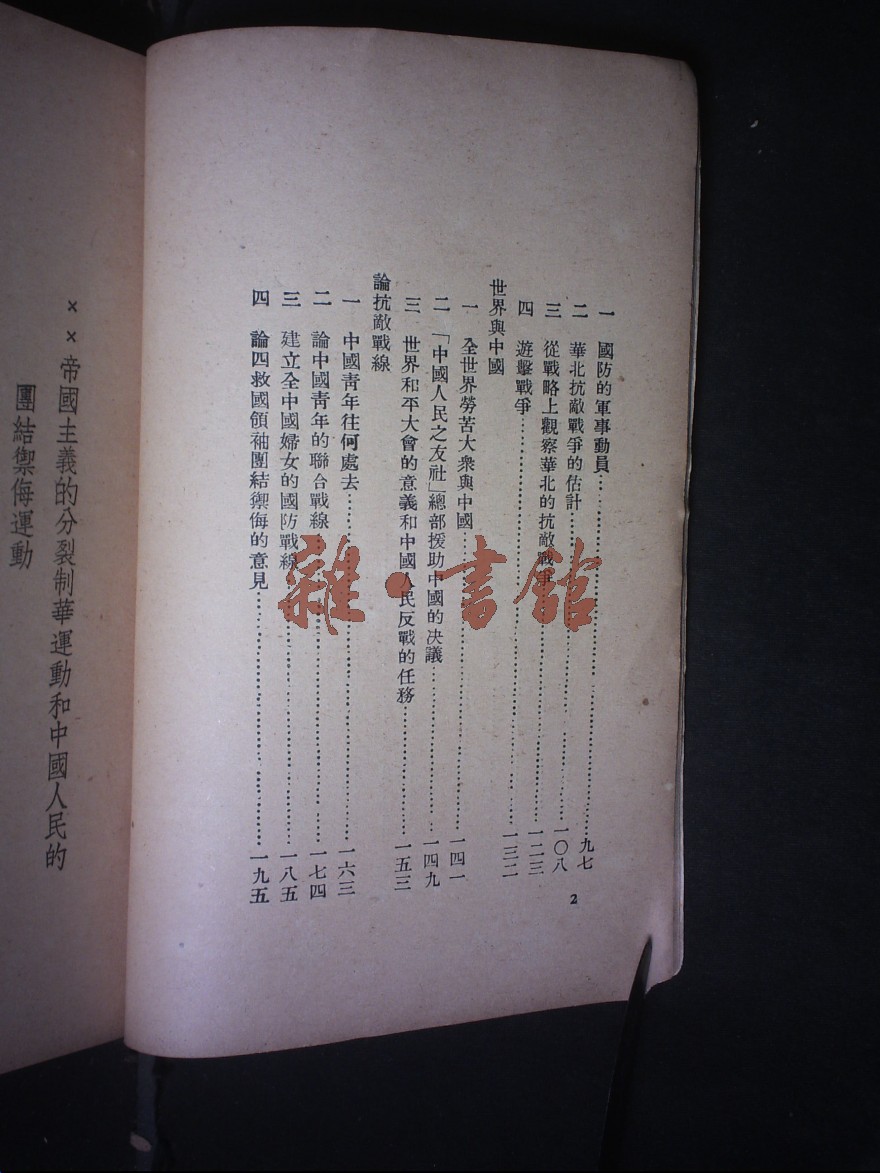 一 國防的軍事動員……九七
二 華北抗敵戰爭的估計……一〇八
三 從戰略上觀察華北的抗敵戰爭……一二三
四 遊擊戰爭……一三二
世界與中國
一 全世界勞苦大衆與中國……一四一
二 「中國人民之友社」總部援助中國的决議……一四九
三 世界和平大會的意義和中國人民反戰的任務……一五三
論抗敵戰線
一 中國靑年往何處去……一六三
二 論中國靑年的聯合戰線……一七四
三 建立全中國婦女的國防戰線……一八五
四 論四救國領袖團結禦侮的意見……一九五
2
××帝國主義的分裂制華運動和中國人民的
團結禦侮運動
雜·書館